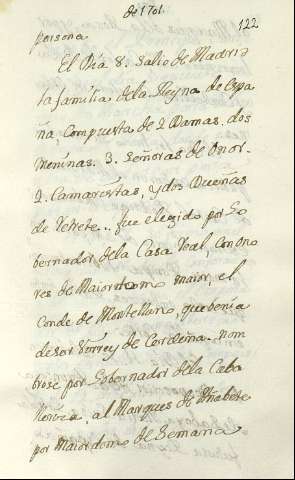 de 1701.
122
persona.
El Dia 8. salio de Madrid
la familia de la Reyna de Espa
ña, Compuesta de 2 Damas. dos
meninas. 3. Señoras de Onor.
2. Camaristas, y dos Dueñas
de Retrete.. fue elegido por Go
bernador de la Casa Real, con ono
res de Maiordomo maior, el
Conde de Montellano, que benia
de ser Virrey de Cerdeña. nom
brose por Gobernador de la Caba
lleriza, al Marques de
por Maiordomo de Semana